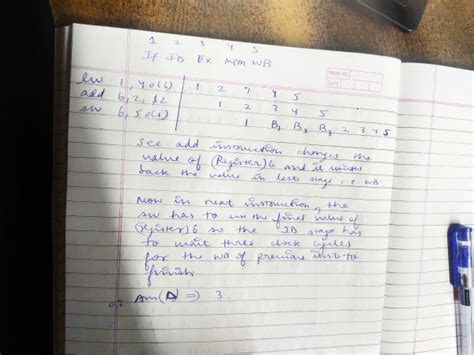 1 2 3 4 5
IF ID Ex mem WB
PAGE NO.
DATE
lw 1, 40(6) | 1 2 3 4 5
add 6, 2, | 1 2 3 4 5
sw 6, 50( | 1 B1 B2 B3 2 3 4 5
See add instruction changes the
value of (Register)6 and it writes
back the value in last stage i.e WB
Now in next instruction, the
sw has to use the final value of
(Register)6 so the ID stage has
to wait three clock cycles
for the WB of previous inst to
finish.
Ans(D) => 3.